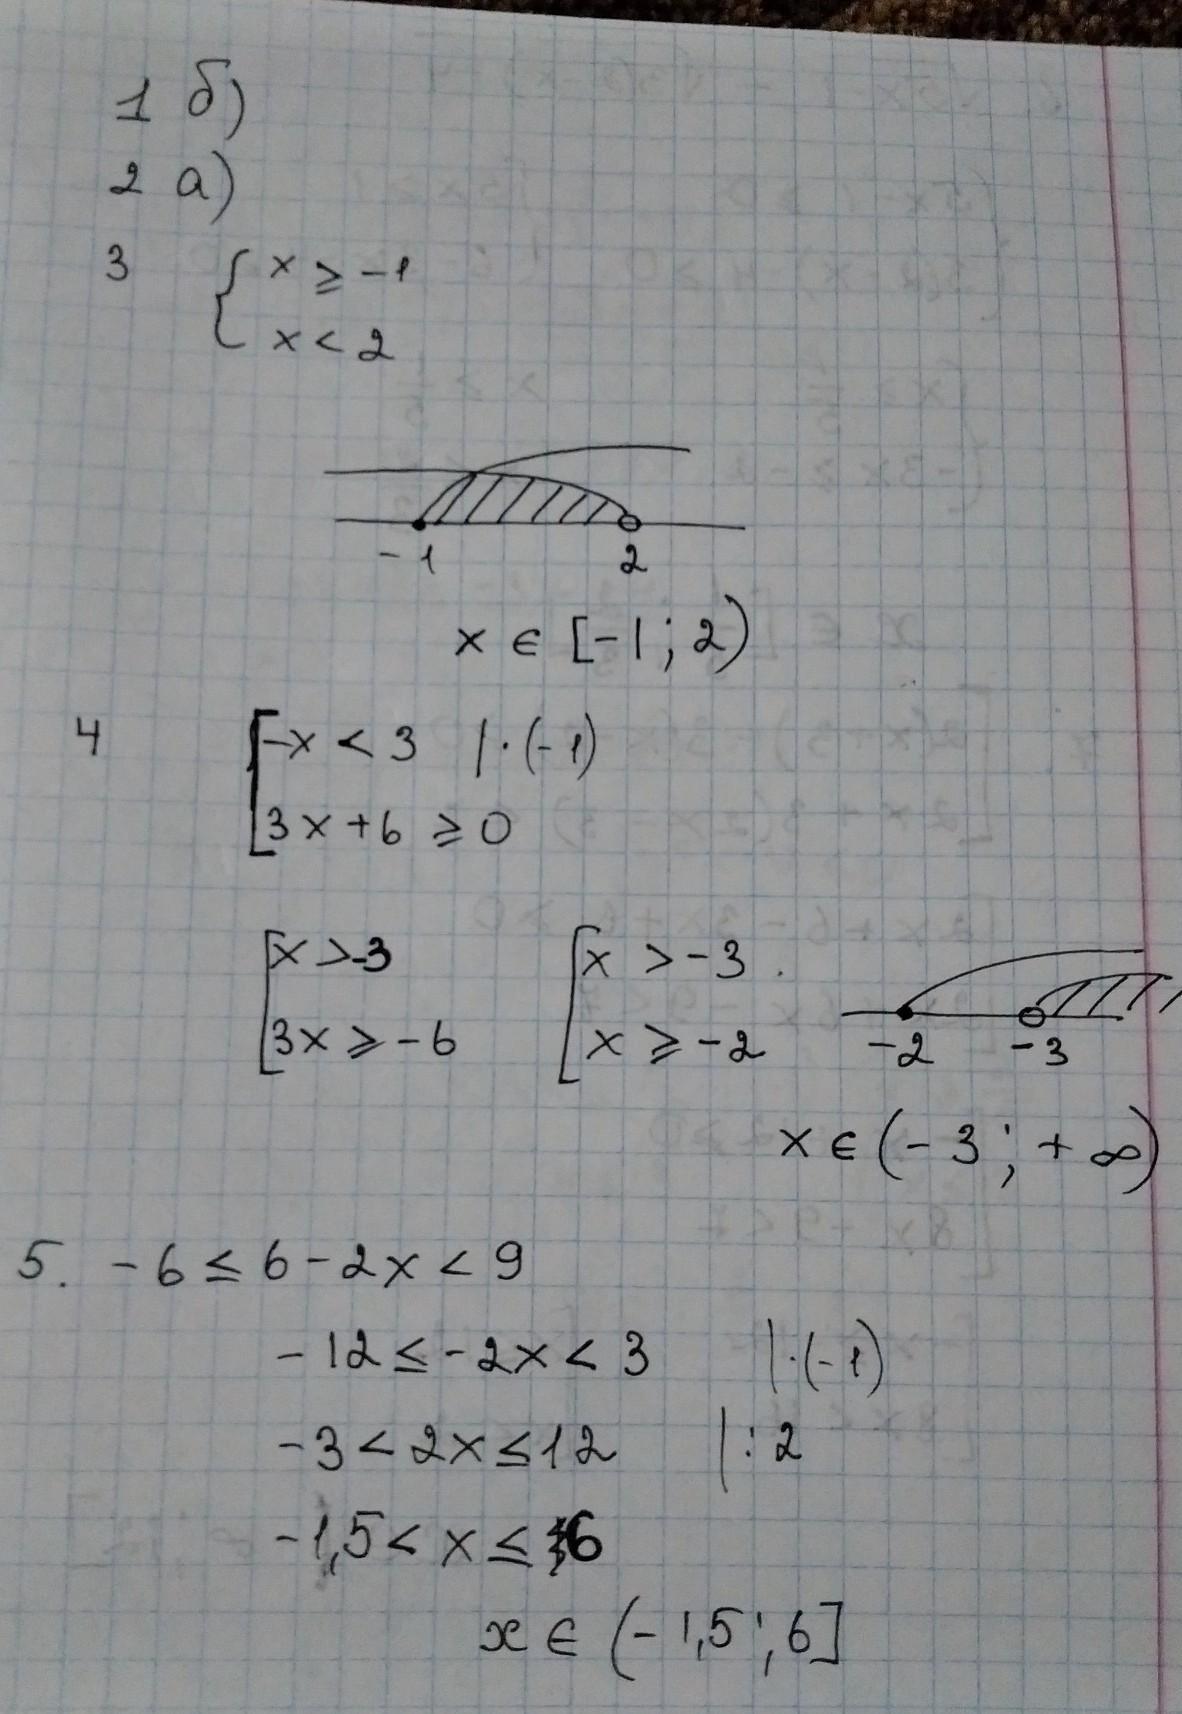 1 б)
2 а)
3 { x ⩾ -1
x < 2
-1 2
x ∈ [-1; 2)
4 [ -x < 3 | · (-1)
3x + 6 ⩾ 0
[ x > -3 [ x > -3 .
3x ⩾ -6 x ⩾ -2 -2 -3
x ∈ (-3; +∞)
5. -6 ≤ 6 - 2x < 9
-12 ≤ -2x < 3 | · (-1)
-3 < 2x ≤ 12 | : 2
-1,5 < x ≤ 6
x ∈ (-1,5; 6]